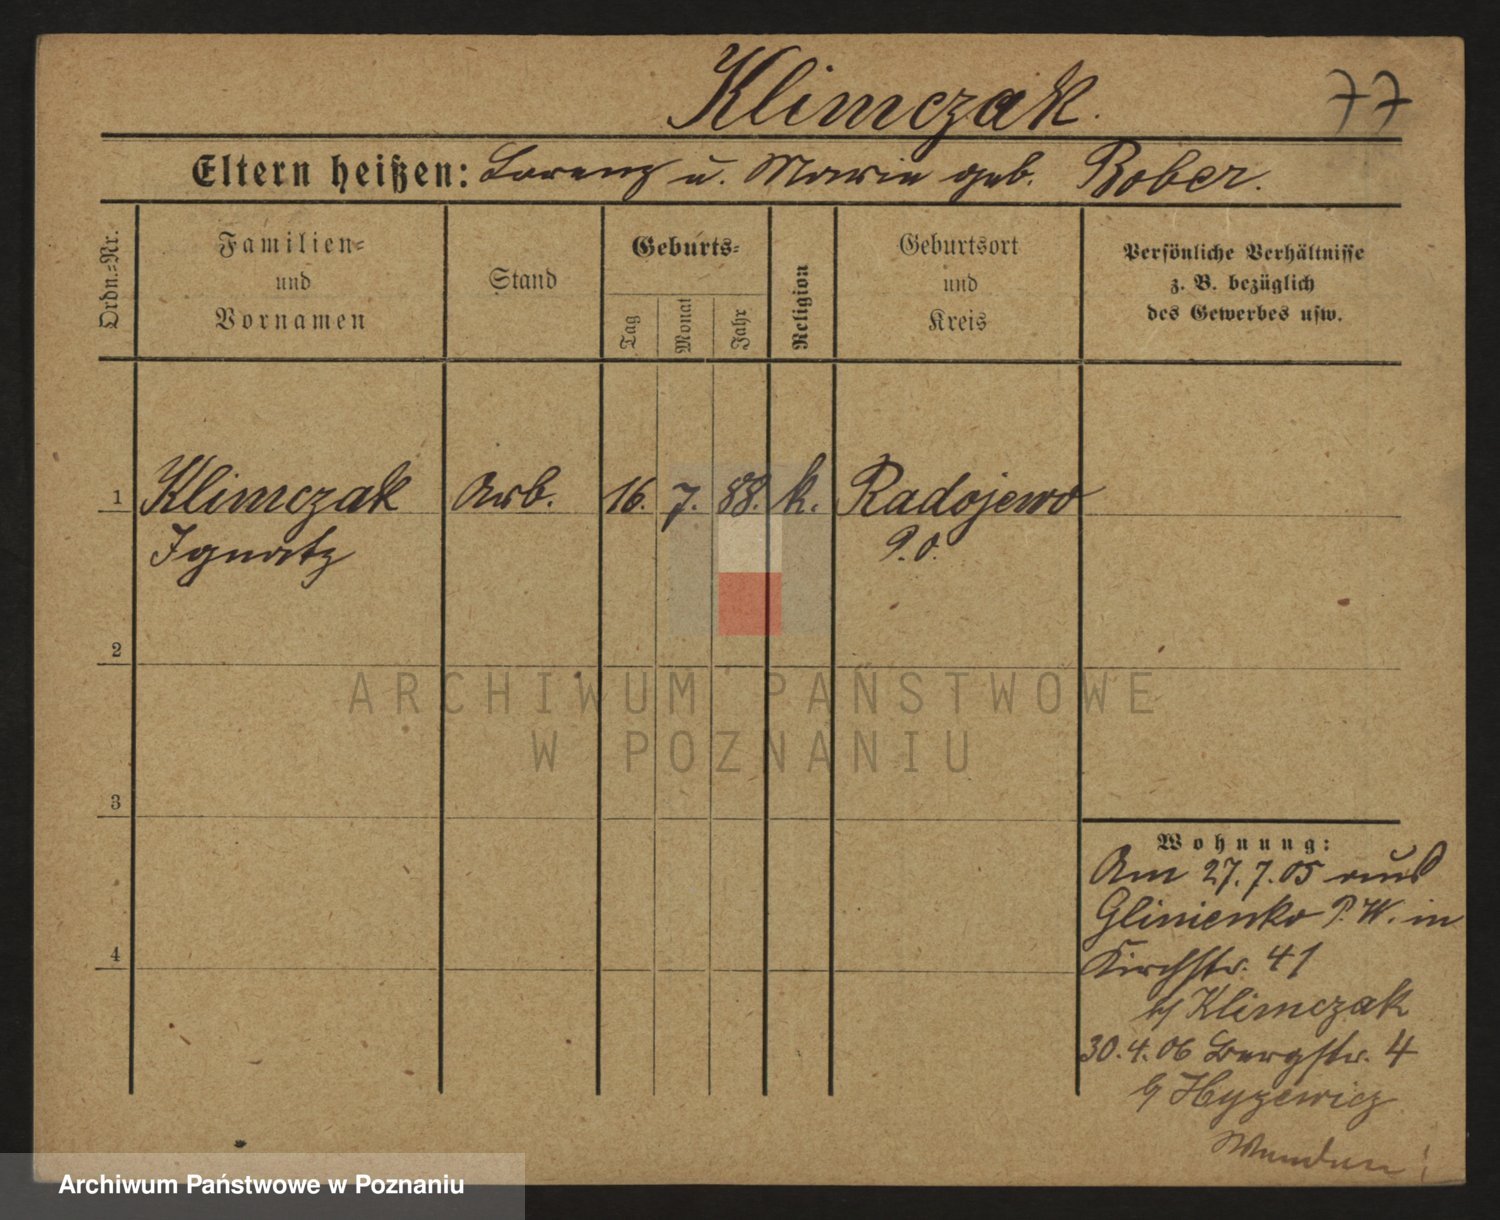 Klimczak.
77
Eltern heißen: Lorenz u. Marie geb. Bober.
Ordn.-Nr.
Familien-
und
Vornamen
Stand
Geburts-
Tag
Monat
Jahr
Religion
Geburtsort
und
Kreis
Persönliche Verhältnisse
z. B. bezüglich
des Gewerbes usw.
1 Klimczak Arb. 16. 7. 88. k. Radojewo
Ignatz P. O.
2
ARCHIWUM PAŃSTWOWE
W POZNANIU
3
4
Wohnung:
Am 27.7.05 aus
Glinienko P. W. in
Kirchstr. 41
b/ Klimczak
30.4.06 Bergstr. 4
b/ Hyzewicz
Wenden!
Archiwum Państwowe w Poznaniu